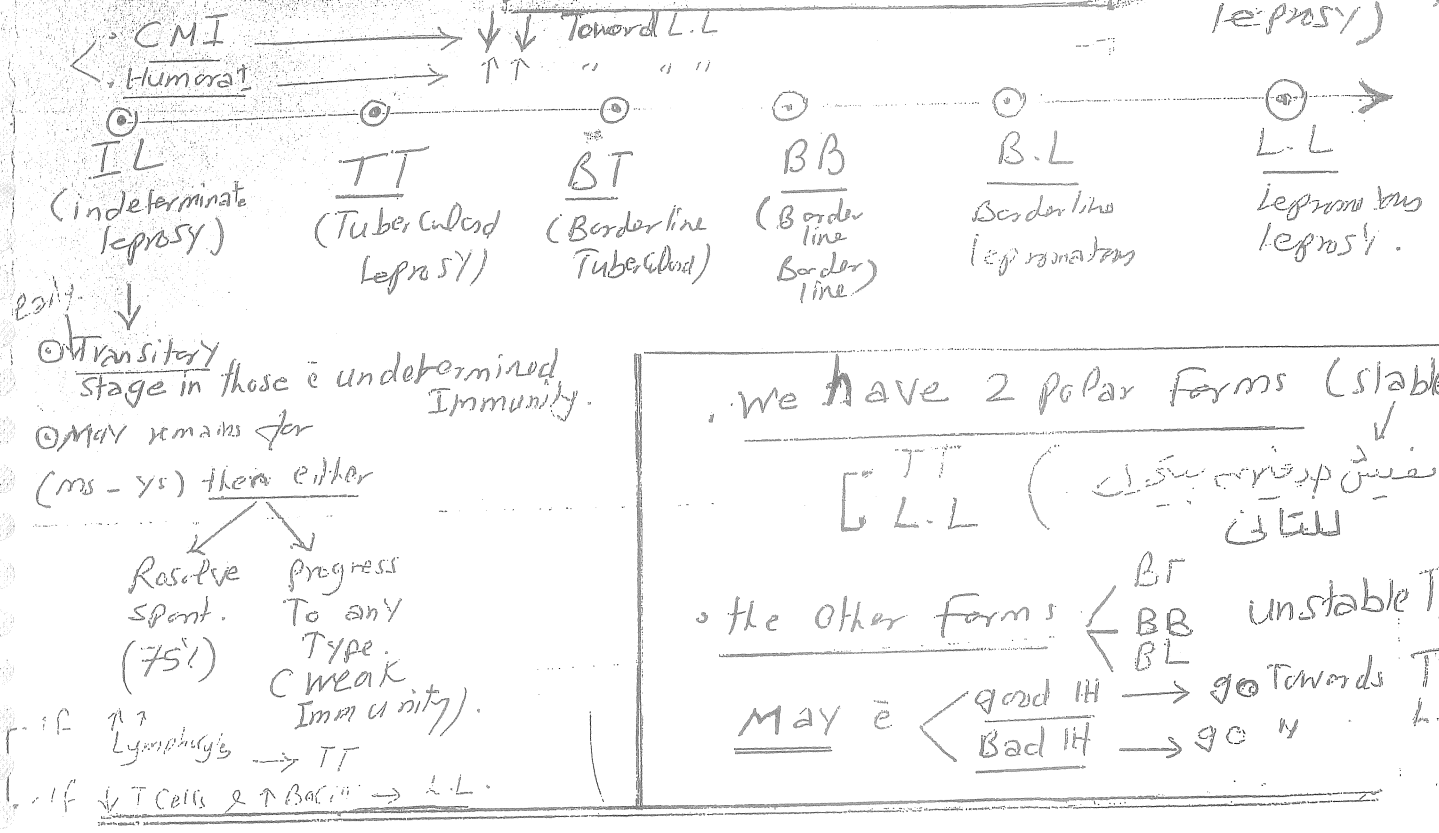 leprosy)
. CMI → ↓ ↓ Toword L.L
. Humoral → ↑ ↑ " " "
IL
(indeterminate
leprosy)
TT
(Tuberculoid
Leprosy)
BT
(Borderline
Tuberculoid)
BB
(Border
line
Border
line)
B.L
Borderline
lepromatous
L.L
lepromatous
leprosy.
early.
↓
Transitory
stage in those ē undetermined
Immunity.
May remains for
(ms - ys) then either
Resolve
spont.
(75%)
Progress
To any
Type.
( weak
Immunity).
. if ↑ ↑
→ TT
. If ↓ T cells & ↑ → L.L.
. We have 2 Polar Forms (stable
TT
L.L
للتاني
. the other Forms
BT
BB
BL
unstable T
May ē
good IH → go Towards T
Bad IH → go " L.